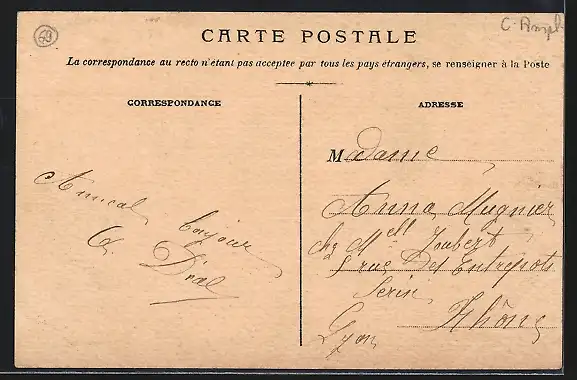 49
CARTE POSTALE
La correspondance au recto n'étant pas acceptée par tous les pays étrangers, se renseigner à la Poste
CORRESPONDANCE
Amical bonjour
ADRESSE
Madame
Anna Mugnier
chz Mell Joubert
rue Des Entrepots
Serin
Lyon Rhône